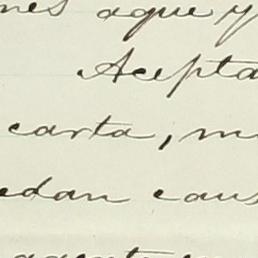 nes aque y
Acepta
carta, m
edan caus